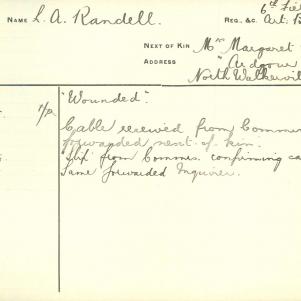 6th Fie
NAME L. A. Randell.
REG. &C. Art. B
NEXT OF KIN Mrs Margaret
ADDRESS "Ardgour
North Walkervil
1/Pa
"Wounded".
Cable received from Commun
forwarded next-of-kin.
Slip from Commun. confirming ca
Same forwarded Inquirer.